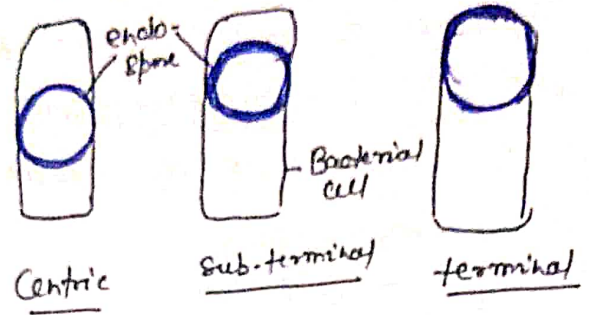 endo-
spore
Bacterial
cell
Centric
Sub-terminal
terminal